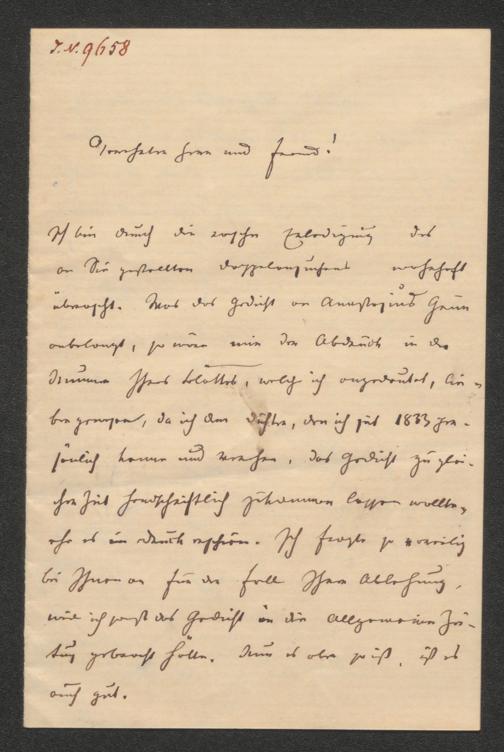 J.N. 9658
Verehrter Herr und Freund!
Ich bin durch die rasche Erledigung des
an Sie gestellten Doppelansuchens wahrhaft
überrascht. Was das Gedicht an Anastasius Grün
anbelangt, so wäre mir der Abdruck in der
Nummer Ihres Blattes, welche ich angedeutet, lie-
ber gewesen, da ich dem Dichter, den ich seit 1833 per-
sönlich kenne und verehre, das Gedicht zu glei-
cher Zeit handschriftlich zukommen lassen wollte,
ehe es im Druck erschien. Ich fragte so
bei Ihnen an für den Fall Ihrer Ablehnung,
weil ich sonst das Gedicht in die Allgemeine Zei-
tung gebracht hätte. Nun es aber so ist, ist es
auch gut.